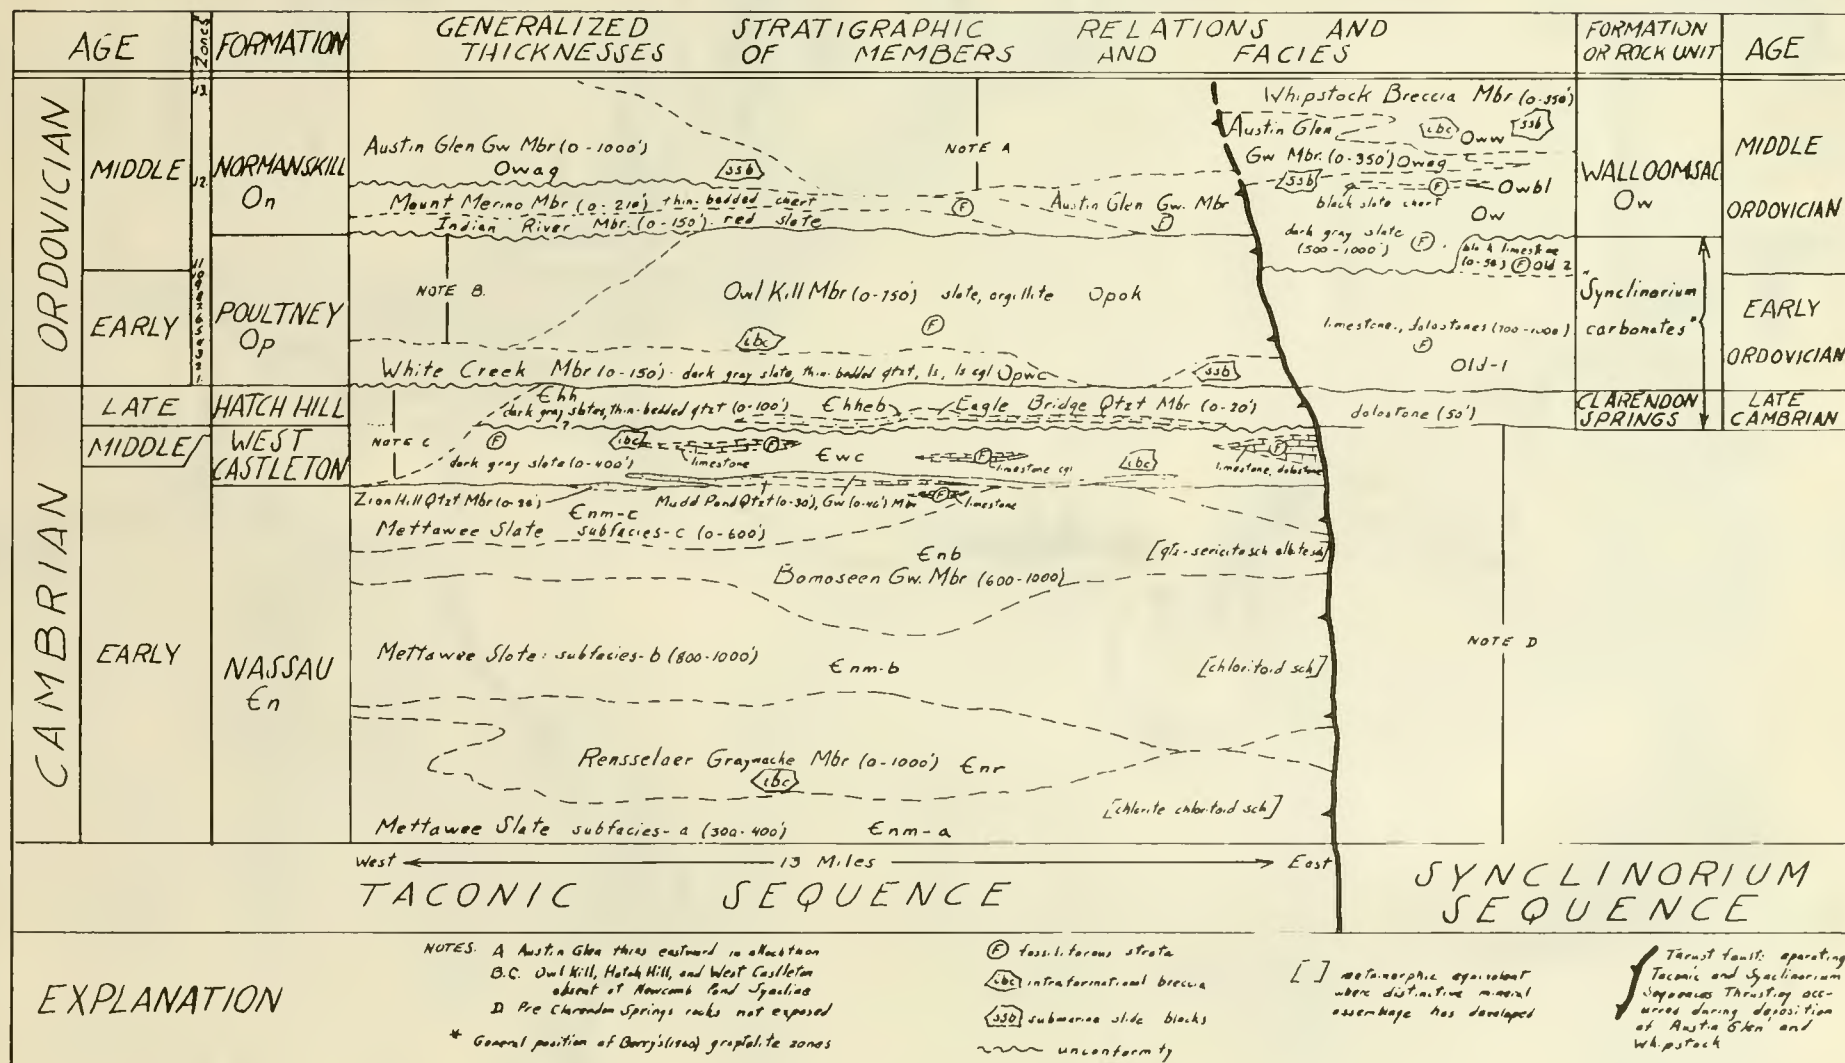 AGE
Zones
FORMATION
GENERALIZED STRATIGRAPHIC RELATIONS AND
THICKNESSES OF MEMBERS AND FACIES
FORMATION
OR ROCK UNIT
AGE
ORDOVICIAN
MIDDLE
EARLY
13
12
11
10
9
8
7
6
5
4
3
2
1
NORMANSKILL
On
POULTNEY
Op
CAMBRIAN
LATE
HATCH HILL
MIDDLE/
WEST
CASTLETON
EARLY
NASSAU
Єn
Austin Glen Gw Mbr (0-1000')
Owag
ssb
NOTE A
Mount Merino Mbr (0-210') thin-bedded chert
F
Austin Glen Gw. Mbr
Indian River Mbr. (0-150') red slate
F
NOTE B.
Owl Kill Mbr (0-750') slate, argillite Opok
F
ibc
White Creek Mbr (0-150')- dark gray slate, thin-bedded qtzt, ls, ls cgl Opwc
ssb
Єhh
dark gray slates, thin-bedded qtzt (0-100')
Єhheb
Eagle Bridge Qtzt Mbr (0-20')
?
NOTE C
F
ibc
F
limestone
Єwc
F
limestone cgl
ibc
F
limestone, dolostone
dark gray slate (0-400')
Zion Hill Qtzt Mbr (0-30')
Mudd Pond Qtzt (0-30'), Gw (0-40') Mbr
F
limestone
Єnm-c
Mettawee Slate subfacies-c (0-600')
Єnb
[qtz-sericite sch albite sch]
Bomoseen Gw. Mbr (600-1000)
Mettawee Slate: subfacies-b (800-1000')
Єnm-b
[chloritoid sch]
Rensselaer Graywacke Mbr (0-1000') Єnr
ibc
[chlorite chloritoid sch]
Mettawee Slate subfacies-a (300-400')
Єnm-a
Whipstock Breccia Mbr (0-350')
Austin Glen
ibc
Oww
ssb
Gw Mbr. (0-350') Owag
ssb
F
Owbl
black slate chert
Ow
dark gray slate
(500-1000')
F
black limestone
(0-50') F Old 2
limestone, dolostones (700-1000)
F
Old-1
dolostone (50')
NOTE D
WALLOOMSAC
Ow
"Synclinorium
carbonates"
CLARENDON
SPRINGS
MIDDLE
ORDOVICIAN
EARLY
ORDOVICIAN
LATE
CAMBRIAN
West
13 Miles
East
TACONIC SEQUENCE
SYNCLINORIUM
SEQUENCE
EXPLANATION
NOTES: A Austin Glen thins eastward in allochthon
B.C. Owl Kill, Hatch Hill, and West Castleton
absent at Newcomb Pond Syncline
D Pre Clarendon Springs rocks not exposed
* General position of Berry's (1960) graptolite zones
F fossiliferous strata
ibc intraformational breccia
ssb submarine slide blocks
unconformity
[ ] metamorphic equivalent
where distinctive mineral
assemblage has developed
Thrust fault: separating
Taconic and Synclinorium
Sequences Thrusting occ-
urred during deposition
of Austin Glen and
Whipstock